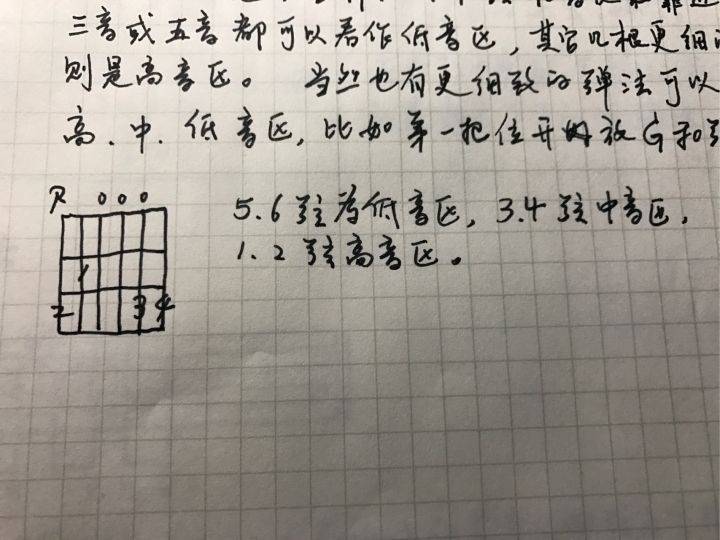 三音或五音都可以看作低音区，其它几根更细的
则是高音区。 当然也有更细致的弹法可以
高、中、低音区，比如第一把位开放G和弦
R o o o
5.6弦为低音区，3.4弦中音区，
1.2弦高音区。
1
2 3 4